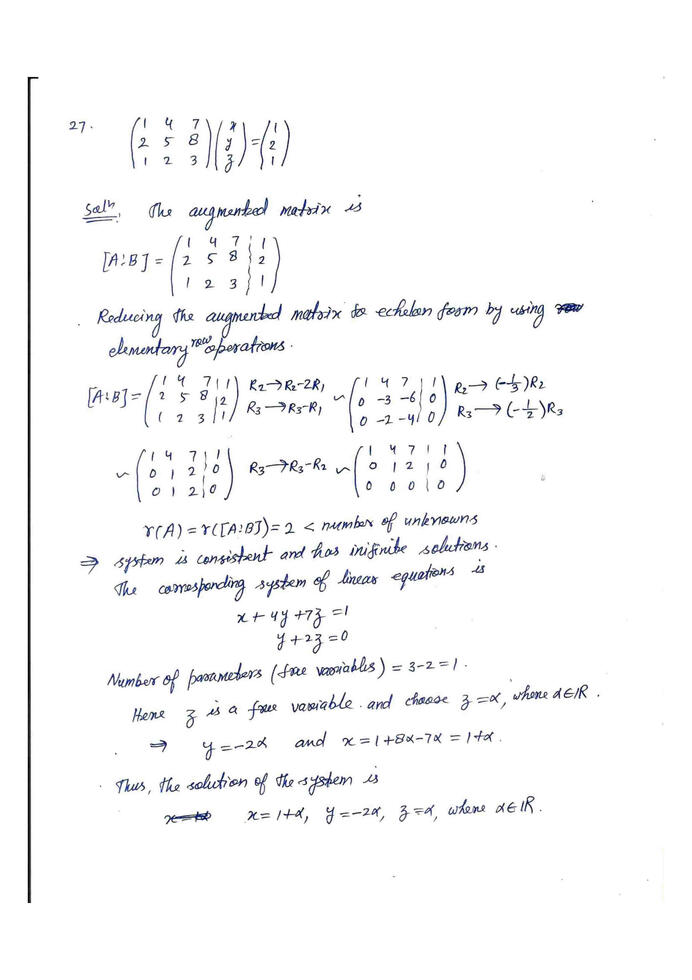 27. (1 4 7 / 2 5 8 / 1 2 3)(x / y / z) = (1 / 2 / 1)
Solⁿ. The augmented matrix is
[A⋮B] = (1 4 7 ⋮ 1 / 2 5 8 ⋮ 2 / 1 2 3 ⋮ 1)
Reducing the augmented matrix to echelon form by using
elementary row operations.
[A⋮B] = (1 4 7 | 1 / 2 5 8 | 2 / 1 2 3 | 1) R₂→R₂-2R₁ R₃→R₃-R₁ ~ (1 4 7 | 1 / 0 -3 -6 | 0 / 0 -2 -4 | 0) R₂→(-1/3)R₂ R₃→(-1/2)R₃
~ (1 4 7 | 1 / 0 1 2 | 0 / 0 1 2 | 0) R₃→R₃-R₂ ~ (1 4 7 | 1 / 0 1 2 | 0 / 0 0 0 | 0)
r(A) = r([A⋮B]) = 2 < number of unknowns
⇒ system is consistent and has inifinite solutions.
The corresponding system of linear equations is
x + 4y + 7z = 1
y + 2z = 0
Number of parameters (free variables) = 3-2 = 1.
Here z is a free variable. and choose z = α, where α∈IR.
⇒ y = -2α and x = 1+8α-7α = 1+α.
Thus, the solution of the system is
x = 1+α, y = -2α, z = α, where α∈IR.